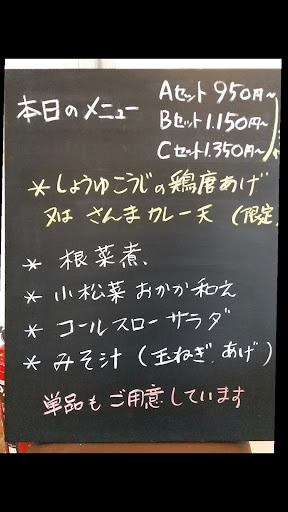 本日のメニュー
Aセット 950円~
Bセット 1.150円~
Cセット 1.350円~
* しょうゆこうじの鶏唐あげ
又は さんまカレー天 (限定
* 根菜煮
* 小松菜おかか和え
* コールスローサラダ
* みそ汁 (玉ねぎ、あげ)
単品もご用意しています